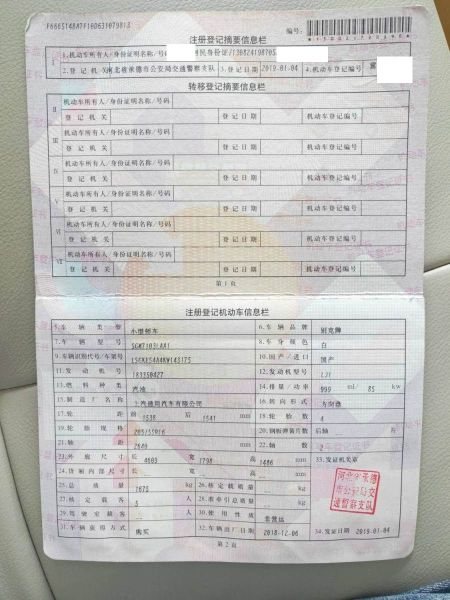 注册登记摘要信息栏
编号：
1.机动车所有人/身份证明名称/号码
2.登记机关 河北省承德市公安局交通警察支队 3.登记日期 2019-01-04 4.机动车登记编号 冀
转移登记摘要信息栏
Ⅱ 机动车所有人/身份证明名称/号码
登记机关 登记日期 机动车登记编号
Ⅲ 机动车所有人/身份证明名称/号码
登记机关 登记日期 机动车登记编号
Ⅳ 机动车所有人/身份证明名称/号码
登记机关 登记日期 机动车登记编号
Ⅴ 机动车所有人/身份证明名称/号码
登记机关 登记日期 机动车登记编号
Ⅵ 机动车所有人/身份证明名称/号码
登记机关 登记日期 机动车登记编号
Ⅶ 机动车所有人/身份证明名称/号码
登记机关 登记日期 机动车登记编号
第1页
注册登记机动车信息栏
5.车辆类型 小型轿车 6.车辆品牌 别克牌
7.车辆型号 SGM7103LAA1 8.车身颜色 白
9.车辆识别代号/车架号 10.国产/进口 国产
11.发动机号 183350427 12.发动机型号 LIV
13.燃料种类 汽油 14.排量/功率 999 ml/ 85 kw
15.制造厂名称 上汽通用汽车有限公司 16.转向形式 方向盘
17.轮距 前 1538 后 1541 mm 18.轮胎数 4
19.轮胎规格 205/55R16 20.钢板弹簧片数 后轴 片
21.轴距 2640 mm 22.轴数 2
23.外廓尺寸 长 4609 宽 1798 高 1486 mm 33.发证机关章
24.货厢内部尺寸 长 宽 高 mm
25.总质量 1675 kg 26.核定载质量 kg
27.核定载客 5 人 28.准牵引总质量 kg
29.驾驶室载客 人 30.使用性质 非营运
31.车辆获得方式 购买 32.车辆出厂日期 2018-12-06 34.发证日期 2019-01-04
河北省承德
市公安局交
通警察支队
第2页